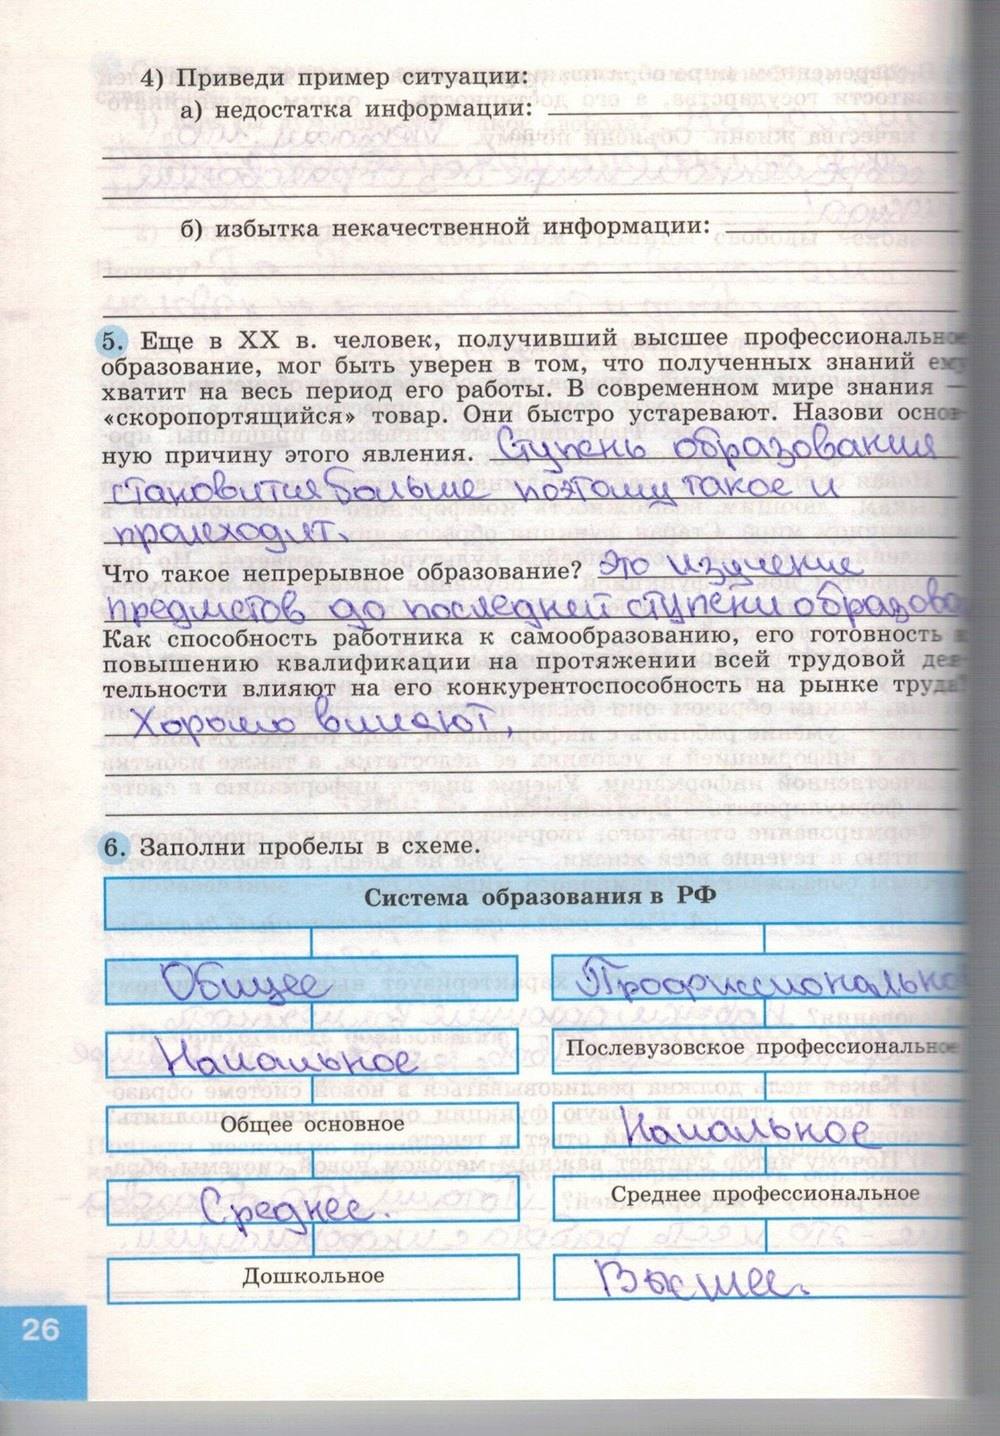 4) Приведи пример ситуации:
а) недостатка информации:
б) избытка некачественной информации:
5. Еще в XX в. человек, получивший высшее профессиональное
образование, мог быть уверен в том, что полученных знаний ему
хватит на весь период его работы. В современном мире знания —
«скоропортящийся» товар. Они быстро устаревают. Назови основ-
ную причину этого явления. Ступень образования
становится больше поэтому такое и
происходит.
Что такое непрерывное образование? Это изучение
предметов до последней ступени образова
Как способность работника к самообразованию, его готовность к
повышению квалификации на протяжении всей трудовой дея-
тельности влияют на его конкурентоспособность на рынке труда?
Хорошо влияют,
6. Заполни пробелы в схеме.
Система образования в РФ
Общее
Профиссионально
Начальное
Послевузовское профессиональное
Общее основное
Начальное
Среднее.
Среднее профессиональное
Дошкольное
Высшее.
26